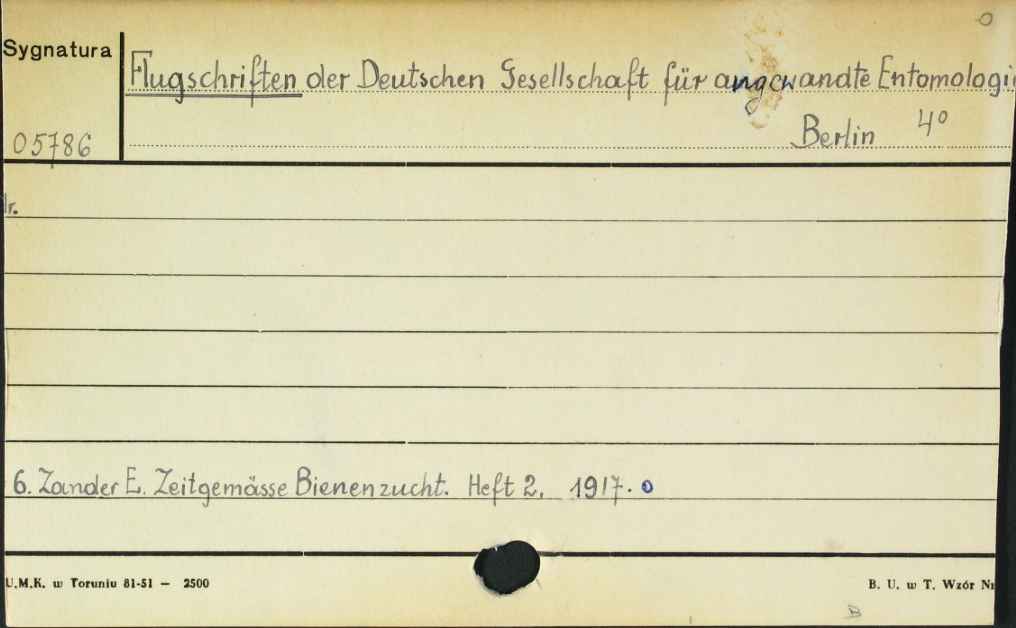 o
Sygnatura
Flugschriften der Deutschen Gesellschaft für angewandte Entomologi
Berlin 4°
05786
6. Zander E. Zeitgemässe Bienenzucht. Heft 2. 1917. o
U.M.K. w Toruniu 81-51 — 2500
B. U. w T. Wzór Nr
B